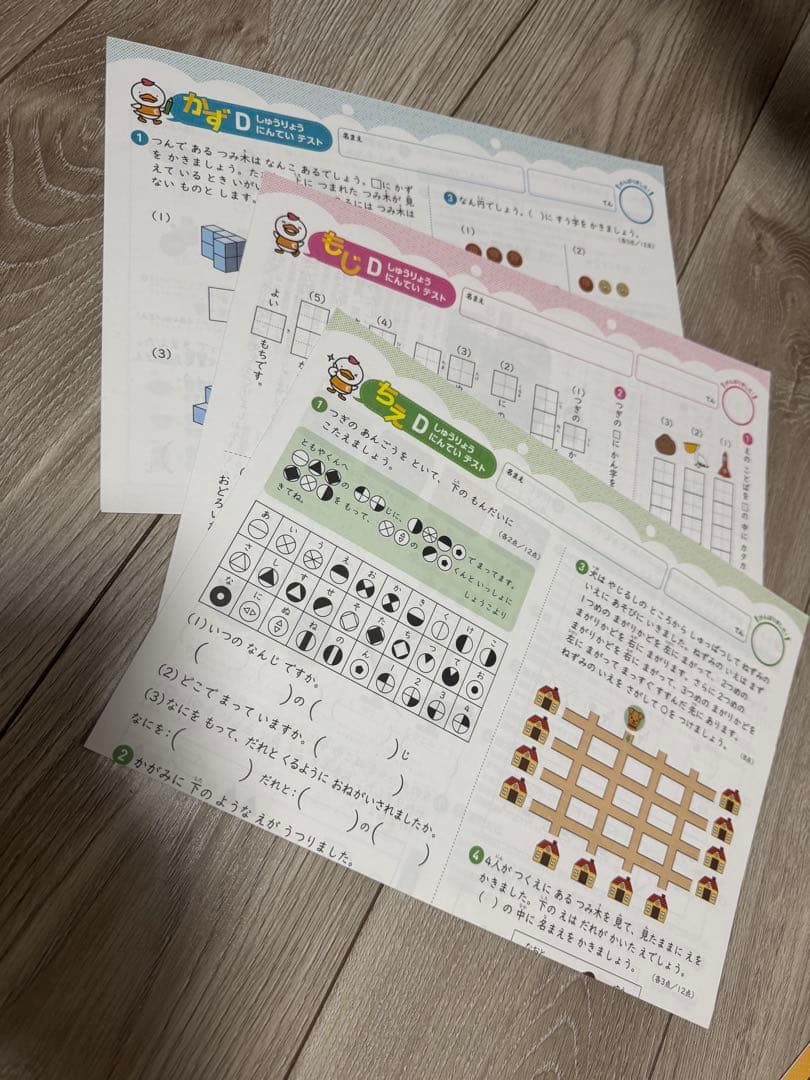 かず D しゅうりょう
にんてい テスト
名まえ
てん
1 つんで ある つみ木は なんこ あるでしょう。□に かず
を かきましょう。
えて いる とき
下に つまれた つみ木が 見
ない ものと します。
には つみ木は
(1)
(3)
3 なん円でしょう。( )に すう字を かきましょう。
(1)
(2)
もじ D しゅうりょう
にんてい テスト
名まえ
てん
1 えの ことばを □の 中に カタカ
(1)
(2)
(3)
2 つぎの □に かん字を
(1) つぎの
(2)
(3)
(4)
(5)
よい
もちです。
おどろい
ちえ D しゅうりょう
にんてい テスト
名まえ
てん
1 つぎの あんごうを といて、下の もんだいに
こたえましょう。
(各2点/12点)
ともやくんへ
の
じに、
で まってます。
を もって、
の
くんと いっしょに
きてね。
しょうこより
あ い う え お か き く け こ
さ し す せ そ た ち つ て と
な に ぬ ね の ん 1 2 3 4
(1) いつの なんじ ですか。
( )の( )じ
(2) どこで まって いますか。( )
(3) なにを もって、だれと くるように おねがいされましたか。
なにを:( ) だれと:( )の( )
2 かがみに 下の ような えが うつりました。
3 犬は やじるしの ところから しゅっぱつして ねずみの
いえに あそびに いきました。ねずみの いえは まず
1つめの まがりかどを 左に まがって、2つめの
まがりかどを 右に まがります。さらに 2つめの
まがりかどを 右に まがって、3つめの まがりかどを
左に まがって まっすぐ すすんだ 先に あります。
ねずみの いえを さがして ○を つけましょう。
(8点)
4 4人が つくえに ある つみ木を 見て、見たままに えを
かきました。下の えは だれが かいた えでしょう。
( )の 中に 名まえを かきましょう。
(各3点/12点)
なおと